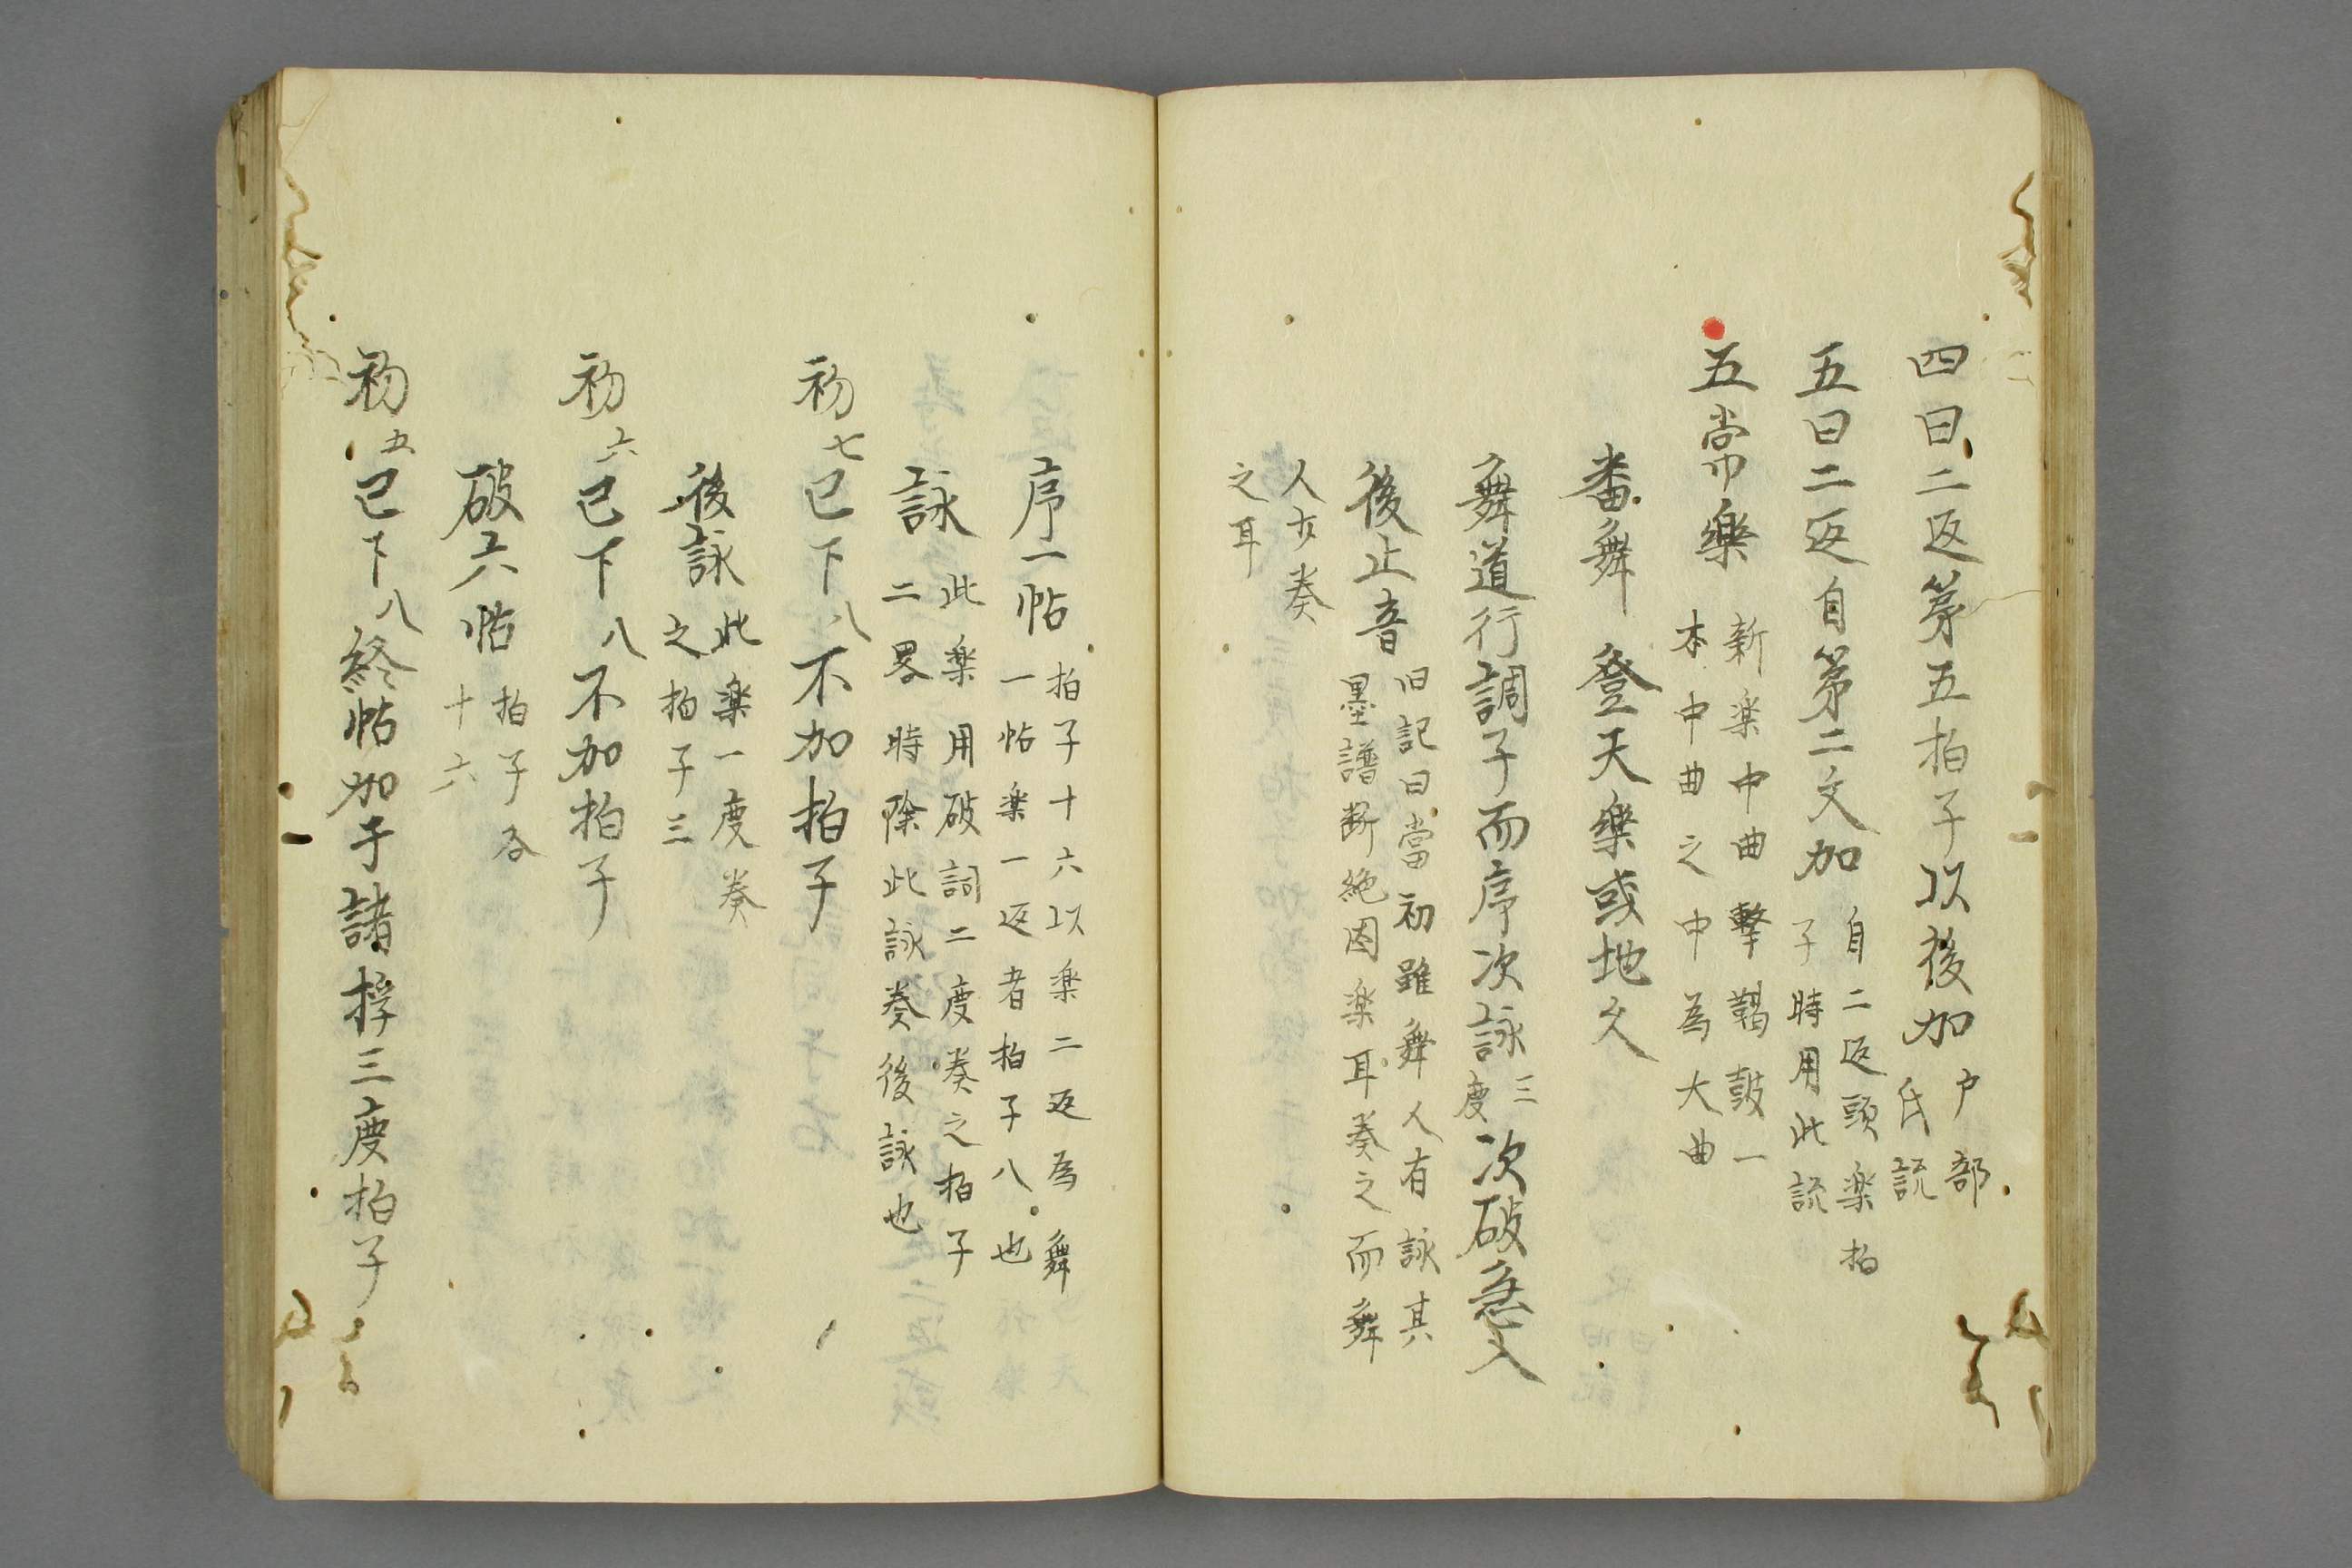 四曰二返第五拍子以後加
戸部
氏説
五曰二返自第二文加
自二返頭楽拍
子時用此説
五常樂
新楽中曲撃鞨鼓一
本中曲之中為大曲
番舞 登天樂或地久
舞道行調子而序次詠三度次破急入
後止音
旧記曰當初雖舞人有詠其
墨譜断絶因楽耳奏之而舞
人亦奏
之耳
序一帖
拍子十六以楽二返為舞
一帖楽一返者拍子八也
詠
此楽用破詞二度奏之拍子
二畧時除此詠奏後詠也
初七已下八不加拍子
後詠
此楽一度奏
之拍子三
初六已下八不加拍子
破六帖
拍子各
十六
初五已下八終帖加于諸拝三度拍子